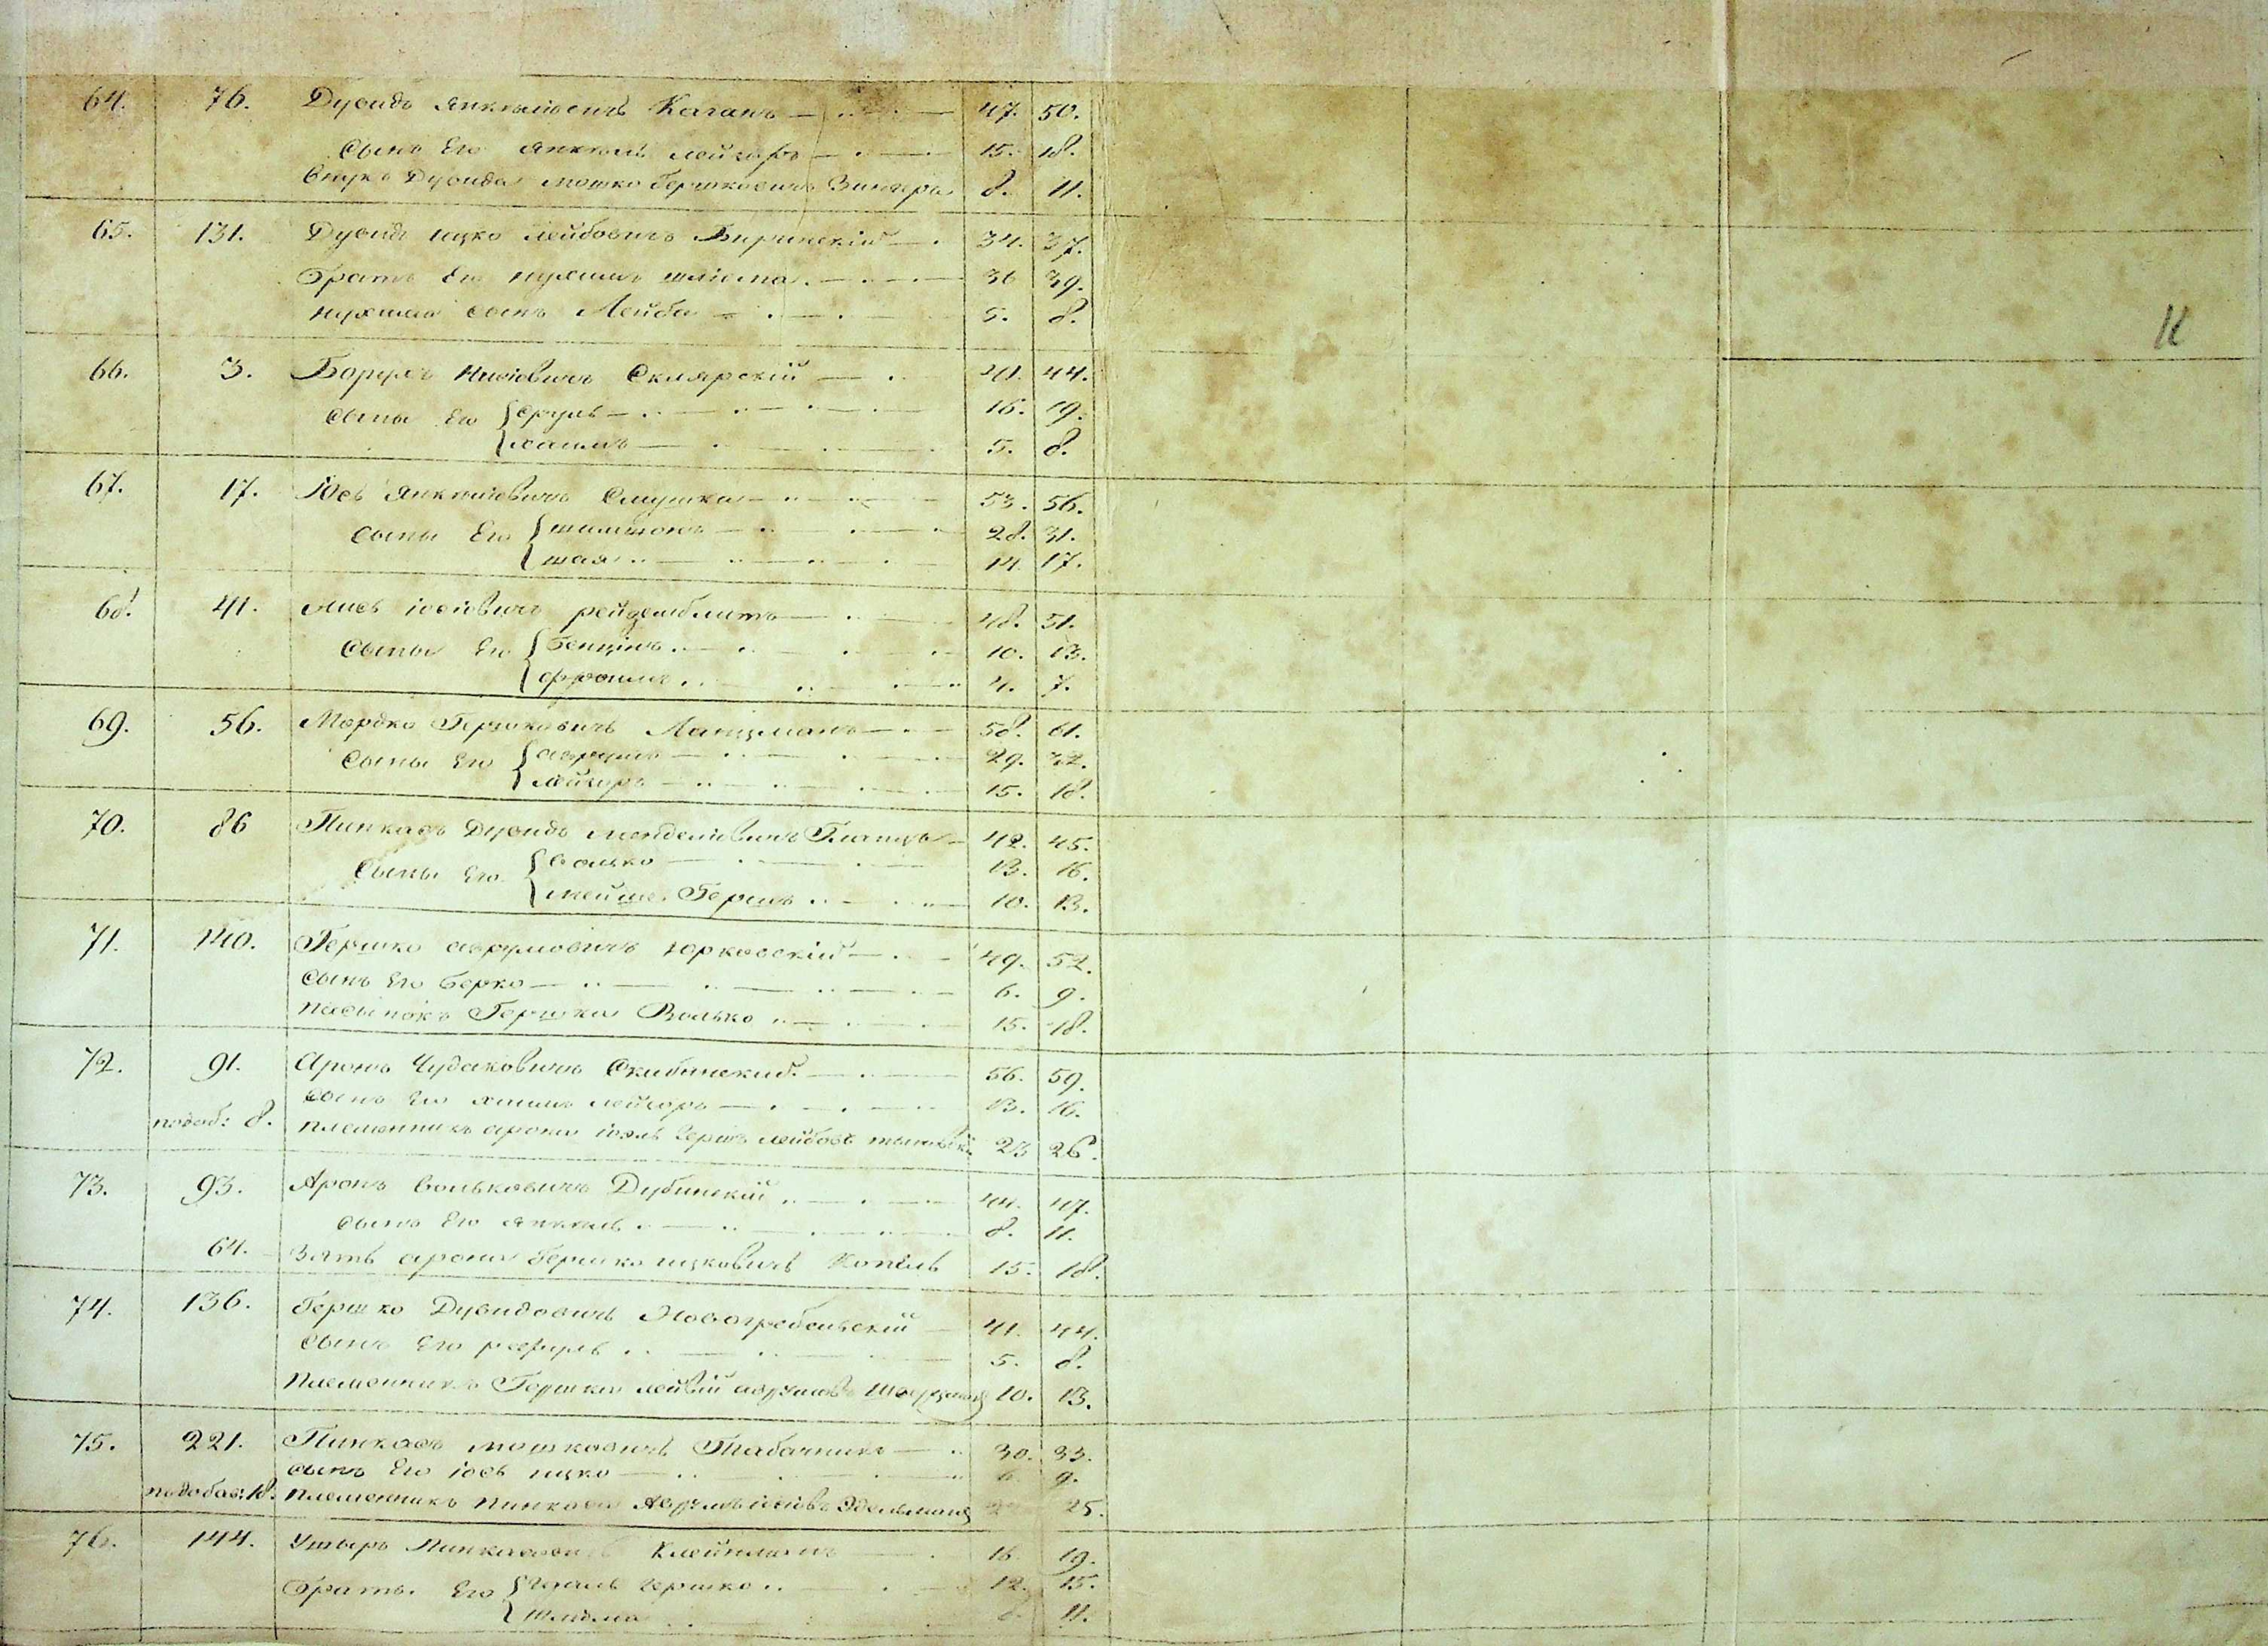 64. 76. Дувидъ Янкелевичъ Каганъ 47. 50.
Сынъ Его Янкель лейзоръ 15. 18.
Внукъ Дувида мошко Гершковичъ 8. 11.
65. 131. Дувидъ ицко Лейбовичъ 34. 37.
Братъ Его нухимъ шлиома 36 39.
нухима сынъ Лейба 5. 8.
11
66. 3. Борухъ Нисiовичъ Склярскiй 41. 44.
Сыны Его { сруль 16. 19.
{ хаимъ 5. 8.
67. 17. Iось Янкелiовичъ Смушка 53. 56.
Сыны Его { шимшонъ 28. 31.
{ шая 14. 17.
68. 41. iосiовичъ 48. 51.
Сыны Его { бенцiнъ 10. 13.
{ фроимъ 4. 7.
69. 56. Мордко Гершковичъ Ланцманъ 58. 61.
Сыны Его { аврумъ 29. 32.
{ лейзоръ 15. 18.
70. 86 Пинкасъ Дувидъ менделiовичъ 42. 45.
Сыны Его { волько 13. 16.
{ мейше Гершъ 10. 13.
71. 140. Гершко аврумовичъ юрковскiй 49. 52.
Сынъ Его берко 6. 9.
пасынокъ Гершка Волько 15. 18.
72. 91. Аронъ Чудаковичъ Скибинский 56. 59.
сынъ Его хаимъ лейзоръ 13. 16.
подоб: 8. племенникъ арона iоэль Гершъ лейбовъ 23 26.
73. 93. Аронъ вольковичъ Дубинскiй 44. 47.
сынъ Его янкель 8. 11.
64. Зять арона Гершко ицковичъ Копель 15. 18.
74. 136. Гершко Дувидовичъ Новогребельскiй 41. 44.
Сынъ Его рефуль 5. 8.
Племенникъ Гершка лейвiй аврумовъ 10. 13.
75. 221. Пинкасъ мошковичъ Табачникъ 30. 33.
сынъ Его iось ицко 6. 9.
по добав: 18. племенникъ пинкаса Аврумъ iосiовъ Эдельманъ 25.
76. 144. Ушыръ Пинкасовичъ Клейнманъ 16. 19.
Братья Его { Гершко 12. 15.
{ шлиома 8. 11.